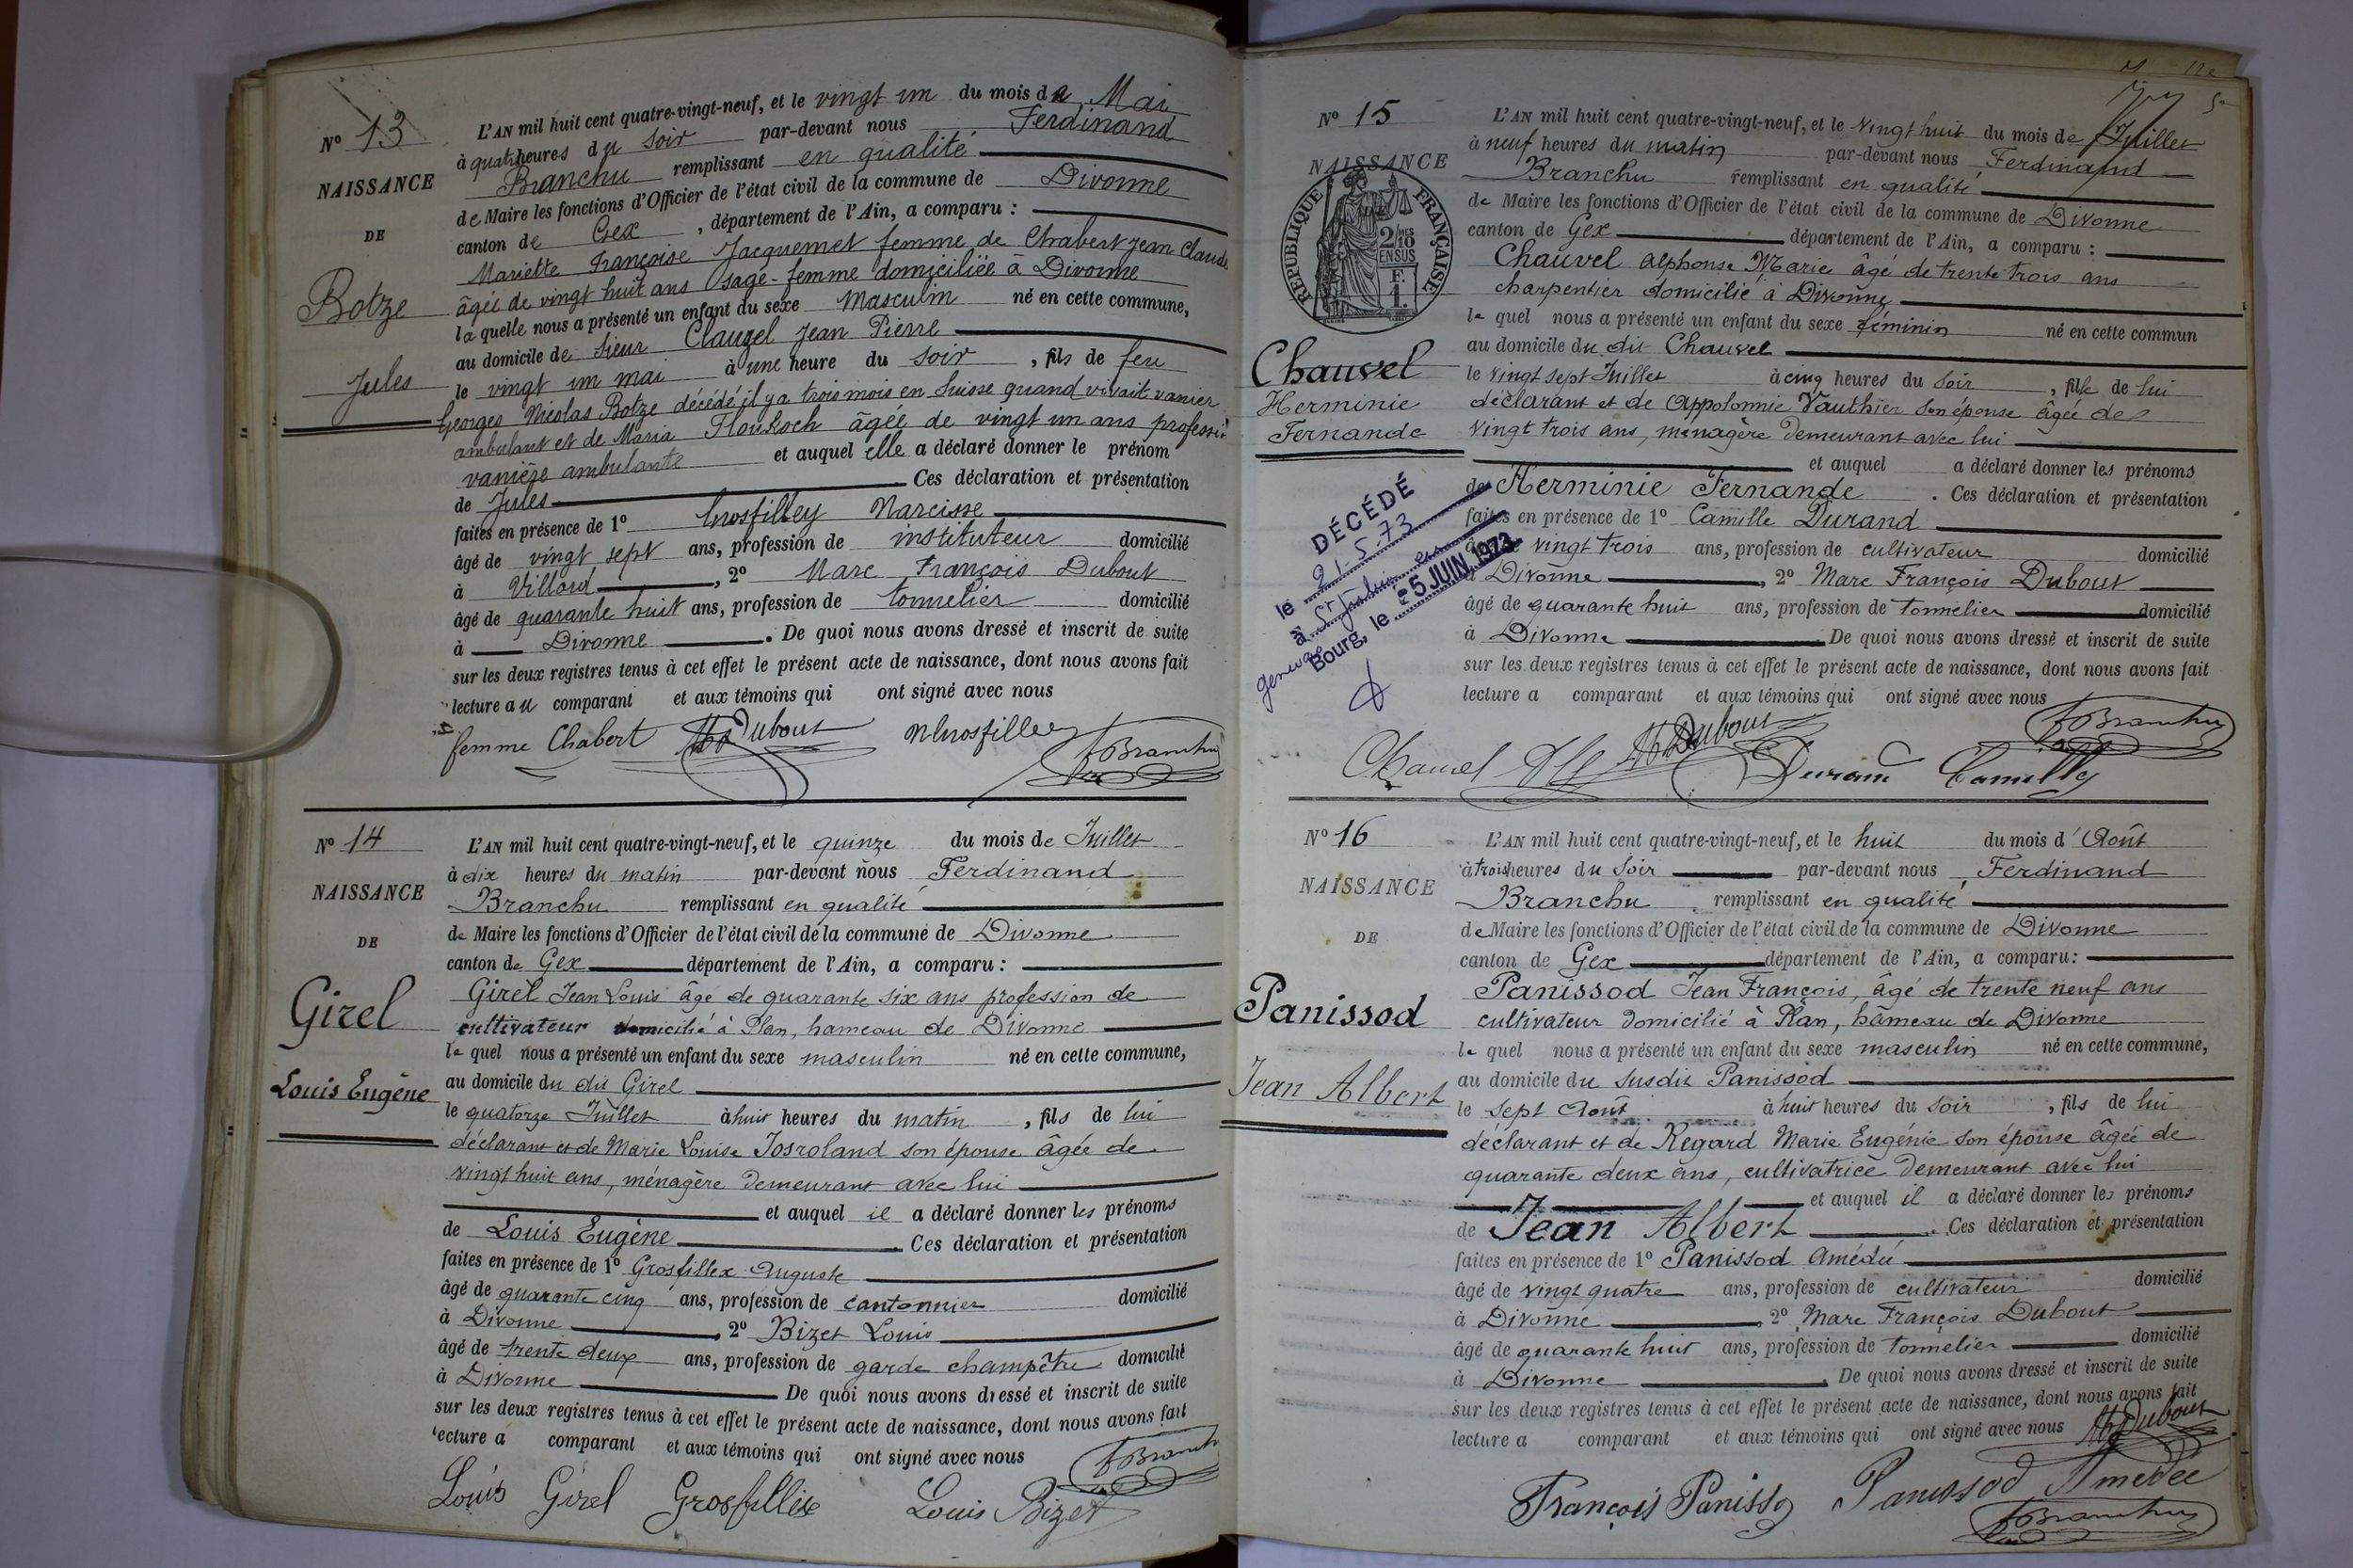 N° 13
NAISSANCE
DE
Botze
Jules
L'AN mil huit cent quatre-vingt-neuf, et le vingt un du mois de Mai
à quatre heures du soir par-devant nous Ferdinand
Branchu remplissant en qualité
de Maire les fonctions d'Officier de l'état civil de la commune de Divonne
canton de Gex, département de l'Ain, a comparu :
Mariette Françoise Jacquemet femme de Chabert Jean Claude
âgée de vingt huit ans sage-femme domiciliée à Divonne
laquelle nous a présenté un enfant du sexe Masculin né en cette commune,
au domicile de sieur Clauzel Jean Pierre
le vingt un mai à une heure du soir, fils de feu
Georges Nicolas Botze décédé il y a trois mois en Suisse quand vivait vanier
ambulant et de Maria âgée de vingt un ans profession
vanière ambulante et auquel elle a déclaré donner le prénom
de Jules Ces déclaration et présentation
faites en présence de 1° Grosfilley Narcisse
âgé de vingt sept ans, profession de instituteur domicilié
à Villard, 2° Marc François Dubout
âgé de quarante huit ans, profession de tonnelier domicilié
à Divonne. De quoi nous avons dressé et inscrit de suite
sur les deux registres tenus à cet effet le présent acte de naissance, dont nous avons fait
lecture au comparant et aux témoins qui ont signé avec nous
femme Chabert Dubout Branchu
N° 14
NAISSANCE
DE
Girel
Louis Eugène
L'AN mil huit cent quatre-vingt-neuf, et le quinze du mois de Juillet
à dix heures du matin par-devant nous Ferdinand
Branchu remplissant en qualité
de Maire les fonctions d'Officier de l'état civil de la commune de Divonne
canton de Gex département de l'Ain, a comparu :
Girel Jean Louis âgé de quarante six ans profession de
cultivateur domicilié à Plan, hameau de Divonne
lequel nous a présenté un enfant du sexe masculin né en cette commune,
au domicile du dit Girel
le quatorze Juillet à huit heures du matin, fils de lui
déclarant et de Marie Louise Josroland son épouse âgée de
vingt huit ans, ménagère demeurant avec lui
et auquel il a déclaré donner les prénoms
de Louis Eugène Ces déclaration et présentation
faites en présence de 1° Grosfillex Auguste
âgé de quarante cinq ans, profession de cantonnier domicilié
à Divonne, 2° Bizet Louis
âgé de trente deux ans, profession de garde champêtre domicilié
à Divonne De quoi nous avons dressé et inscrit de suite
sur les deux registres tenus à cet effet le présent acte de naissance, dont nous avons fait
lecture a comparant et aux témoins qui ont signé avec nous
Branchu
Louis Girel Grosfillex Louis Bizet
N° 15
NAISSANCE
RÉPUBLIQUE FRANÇAISE
2/10 MES
EN SUS
F.
1.
Chauvel
Herminie
Fernande
DÉCÉDÉ
le 21.5.73
à St Julien en
genevois
Bourg, le 25 JUIN 1973
L'AN mil huit cent quatre-vingt-neuf, et le vingt huit du mois de Juillet
à neuf heures du matin par-devant nous Ferdinand
Branchu remplissant en qualité
de Maire les fonctions d'Officier de l'état civil de la commune de Divonne
canton de Gex département de l'Ain, a comparu :
Chauvel Alphonse Marie âgé de trente trois ans
charpentier domicilié à Divonne
lequel nous a présenté un enfant du sexe féminin né en cette commun
au domicile du dit Chauvel
le vingt sept Juillet à cinq heures du soir, fille de lui
déclarant et de Appolonnie Vauthier son épouse âgée de
vingt trois ans, ménagère demeurant avec lui
et auquel a déclaré donner les prénoms
de Herminie Fernande. Ces déclaration et présentation
faites en présence de 1° Camille Durand
âgé de vingt trois ans, profession de cultivateur domicilié
à Divonne, 2° Marc François Dubout
âgé de quarante huit ans, profession de tonnelier domicilié
à Divonne De quoi nous avons dressé et inscrit de suite
sur les deux registres tenus à cet effet le présent acte de naissance, dont nous avons fait
lecture a comparant et aux témoins qui ont signé avec nous
Chauvel Dubout Durand Camille Branchu
N° 16
NAISSANCE
DE
Panissod
Jean Albert
L'AN mil huit cent quatre-vingt-neuf, et le huit du mois d'Août
à trois heures du soir par-devant nous Ferdinand
Branchu remplissant en qualité
de Maire les fonctions d'Officier de l'état civil de la commune de Divonne
canton de Gex département de l'Ain, a comparu :
Panissod Jean François, âgé de trente neuf ans
cultivateur domicilié à Plan, hameau de Divonne
lequel nous a présenté un enfant du sexe masculin né en cette commune,
au domicile du susdit Panissod
le sept Août à huit heures du soir, fils de lui
déclarant et de Regard Marie Eugénie son épouse âgée de
quarante deux ans, cultivatrice demeurant avec lui
et auquel il a déclaré donner les prénoms
de Jean Albert Ces déclaration et présentation
faites en présence de 1° Panissod Amédée
âgé de vingt quatre ans, profession de cultivateur domicilié
à Divonne, 2° Marc François Dubout
âgé de quarante huit ans, profession de tonnelier domicilié
à Divonne. De quoi nous avons dressé et inscrit de suite
sur les deux registres tenus à cet effet le présent acte de naissance, dont nous avons fait
lecture a comparant et aux témoins qui ont signé avec nous Dubout
François Panissod Panissod Amédée
Branchu